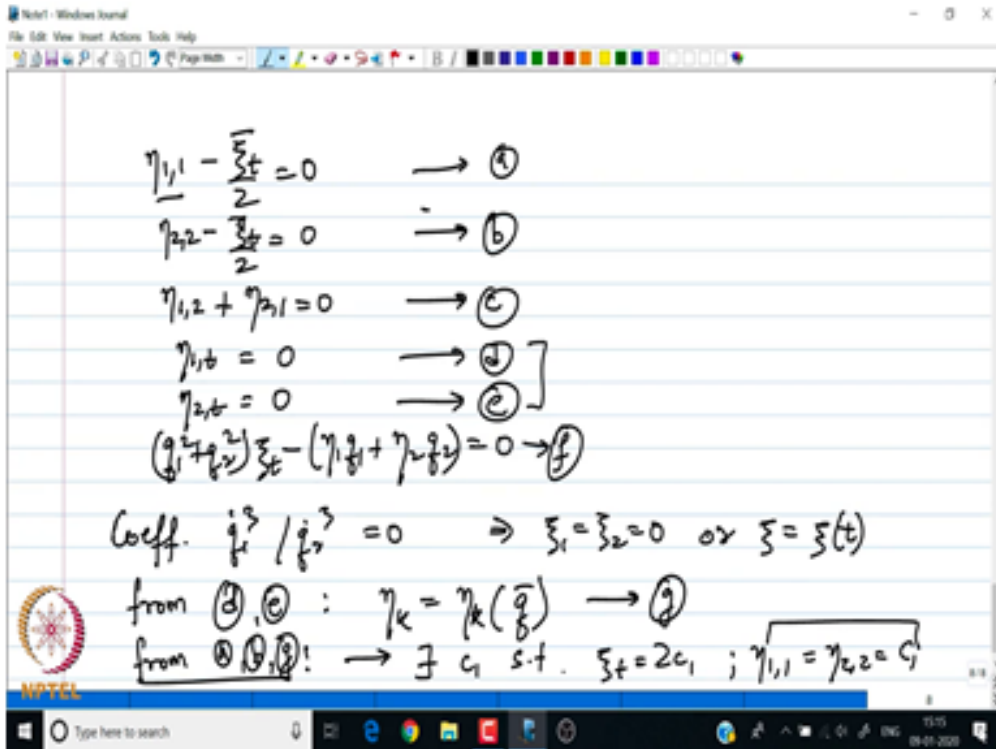 Note1 - Windows Journal
File Edit View Insert Actions Tools Help
Page Width
B I
η₁,₁ - ξₜ/2 = 0 → ⓐ
η₂,₂ - ξₜ/2 = 0 → ⓑ
η₁,₂ + η₂,₁ = 0 → ⓒ
η₁,ₜ = 0 → ⓓ
η₂,ₜ = 0 → ⓔ
(q₁² + q₂²) ξₜ - (η₁q₁ + η₂q₂) = 0 → ⓕ
Coeff. q̇₁³ / q̇₂³ = 0 ⇒ ξ₁ = ξ₂ = 0 or ξ = ξ(t)
from ⓓ, ⓔ : ηₖ = ηₖ(q̄) → ⓖ
from ⓐ, ⓑ, ⓖ : → ∃ c₁ s.t. ξₜ = 2c₁ ; η₁,₁ = η₂,₂ = c₁
NPTEL
8/8
8
Type here to search
ENG
15:15
09-01-2020